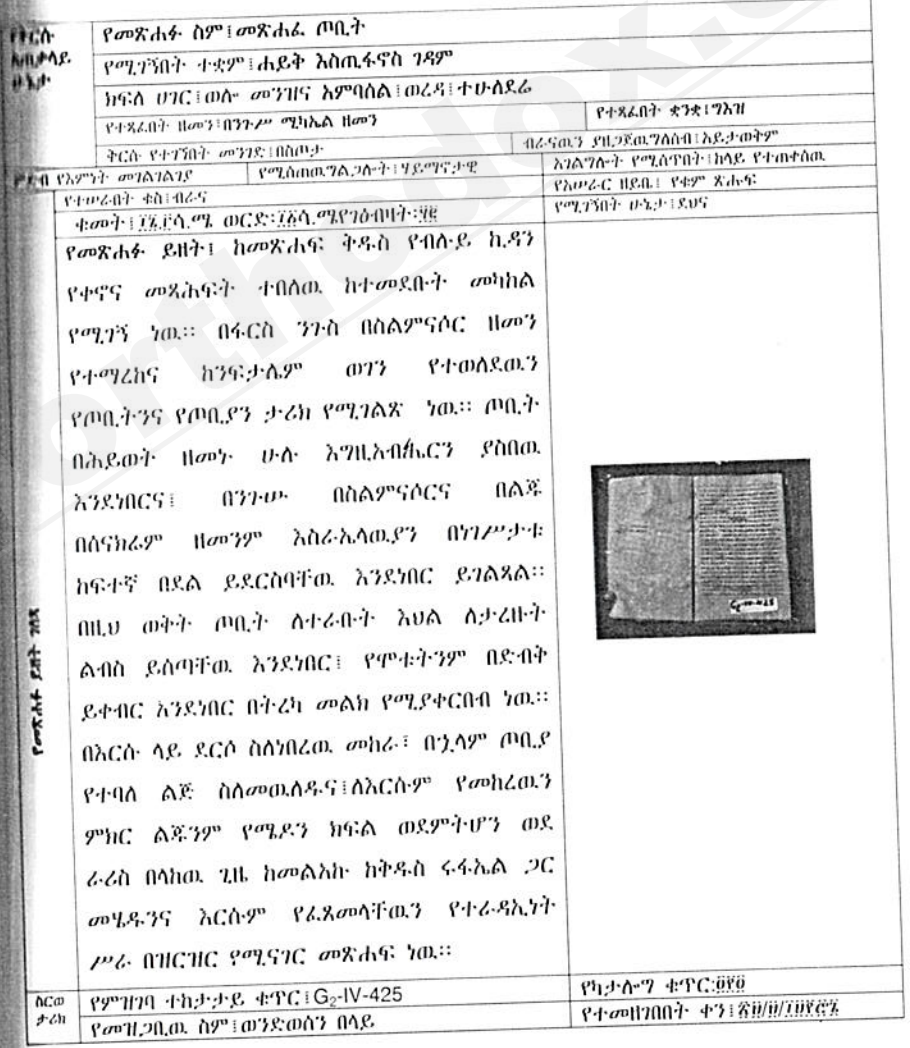 የቅርሱ አጠቃላይ ሁኔታ
የመጽሐፉ ስም፤መጽሐፈ ጦቢት
የሚገኝበት ተቋም፤ሐይቅ እስጢፋኖስ ገዳም
ክፍለ ሀገር፤ወሎ መንዝና አምባሰል፤ወረዳ፤ተሁለደሬ
የተጻፈበት ዘመን፤በንጉሥ ሚካኤል ዘመን የተጻፈበት ቋንቋ፤ግእዝ
ቅርሱ የተገኘበት መንገድ፤በስጦታ ብራናዉን ያዘጋጀዉግለሰብ፤አይታወቅም
የእምነት መገልገልገያ የሚሰጠዉግልጋሎት፤ሃይማኖታዊ አገልግሎት የሚሰጥበት፤ከላይ የተጠቀሰዉ
የተሠራበት ቁስ፤ብራና የአሠራር ዘይቤ፤ የቁም ጽሑፍ
ቁመት፤ ሳ.ሜ ወርድ፡ ሳ.ሜየገፅብዛት፡ የሚገኝበት ሁኔታ፤ደህና
የመጽሐፉ ይዘት ገለጻ
የመጽሐፉ ይዘት፤ ከመጽሐፍ ቅዱስ የብሉይ ኪዳን
የቀኖና መጻሕፍት ተበለዉ ከተመደቡት መካከል
የሚገኝ ነዉ። በፋርስ ንጉስ በስልምናሶር ዘመን
የተማረከና ከንፍታሌም ወገን የተወለደዉን
የጦቢትንና የጦቢያን ታሪክ የሚገልጽ ነዉ። ጦቢት
በሕይወት ዘመኑ ሁሉ እግዚአብሔርን ያስበዉ
እንደነበርና፤ በንጉሡ በስልምናሶርና በልጁ
በሰናክሬም ዘመንም እስራኤላዉያን በነገሥታቱ
ከፍተኛ በደል ይደርስባቸዉ እንደነበር ይገልጻል።
በዚህ ወቅት ጦቢት ለተራቡት እህል ለታረዙት
ልብስ ይሰጣቸዉ እንደነበር፤ የሞቱትንም በድብቅ
ይቀብር እንደነበር በትረካ መልክ የሚያቀርበብ ነዉ።
በእርሱ ላይ ደርሶ ስለነበረዉ መከራ፤ በኋላም ጦቢያ
የተባለ ልጅ ስለመዉለዱና፤ለእርሱም የመከረዉን
ምክር ልጁንም የሜዶን ክፍል ወደምትሆን ወደ
ራሪስ በላከዉ ጊዜ ከመልአኩ ከቅዱስ ሩፋኤል ጋር
መሄዱንና እርሱም የፈጸመላቸዉን የተራዳኢነት
ሥራ በዝርዝር የሚናገር መጽሐፍ ነዉ።
G₂-IV-425
ስርወ ታሪክ
የምዝገባ ተከታታይ ቁጥር፤G₂-IV-425 የካታሎግ ቁጥር፡
የመዝጋቢዉ ስም፤ወንድወሰን በላይ የተመዘገበበት ቀን፤
orthodox.